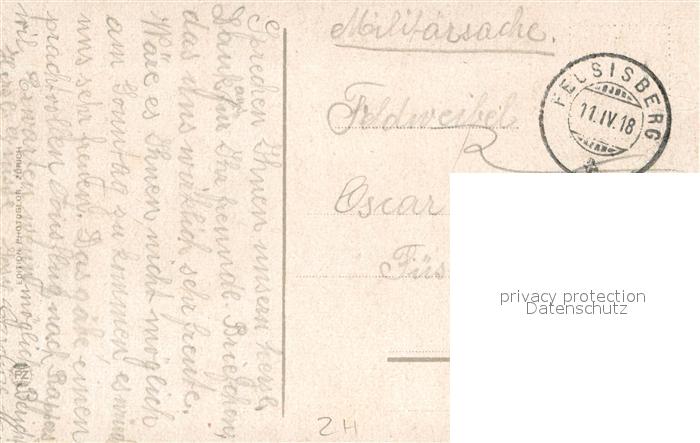 Militärsache.
FELSISBERG
11.IV.18
Feldweibel
Oscar
Füs
privacy protection
Datenschutz
Sprechen Ihnen unsern herzl.
Dank aus für Ihr freundl. Brieflein,
das uns wirklich sehr freute.
Wäre es Ihnen nicht möglich
am Sonntag zu kommen, es würde
uns sehr freuen. Das gäbe einen
prachtvollen Ausflug nach
wir erwarten womöglich
EDITION PHOTOGLOB ZÜRICH
ZH